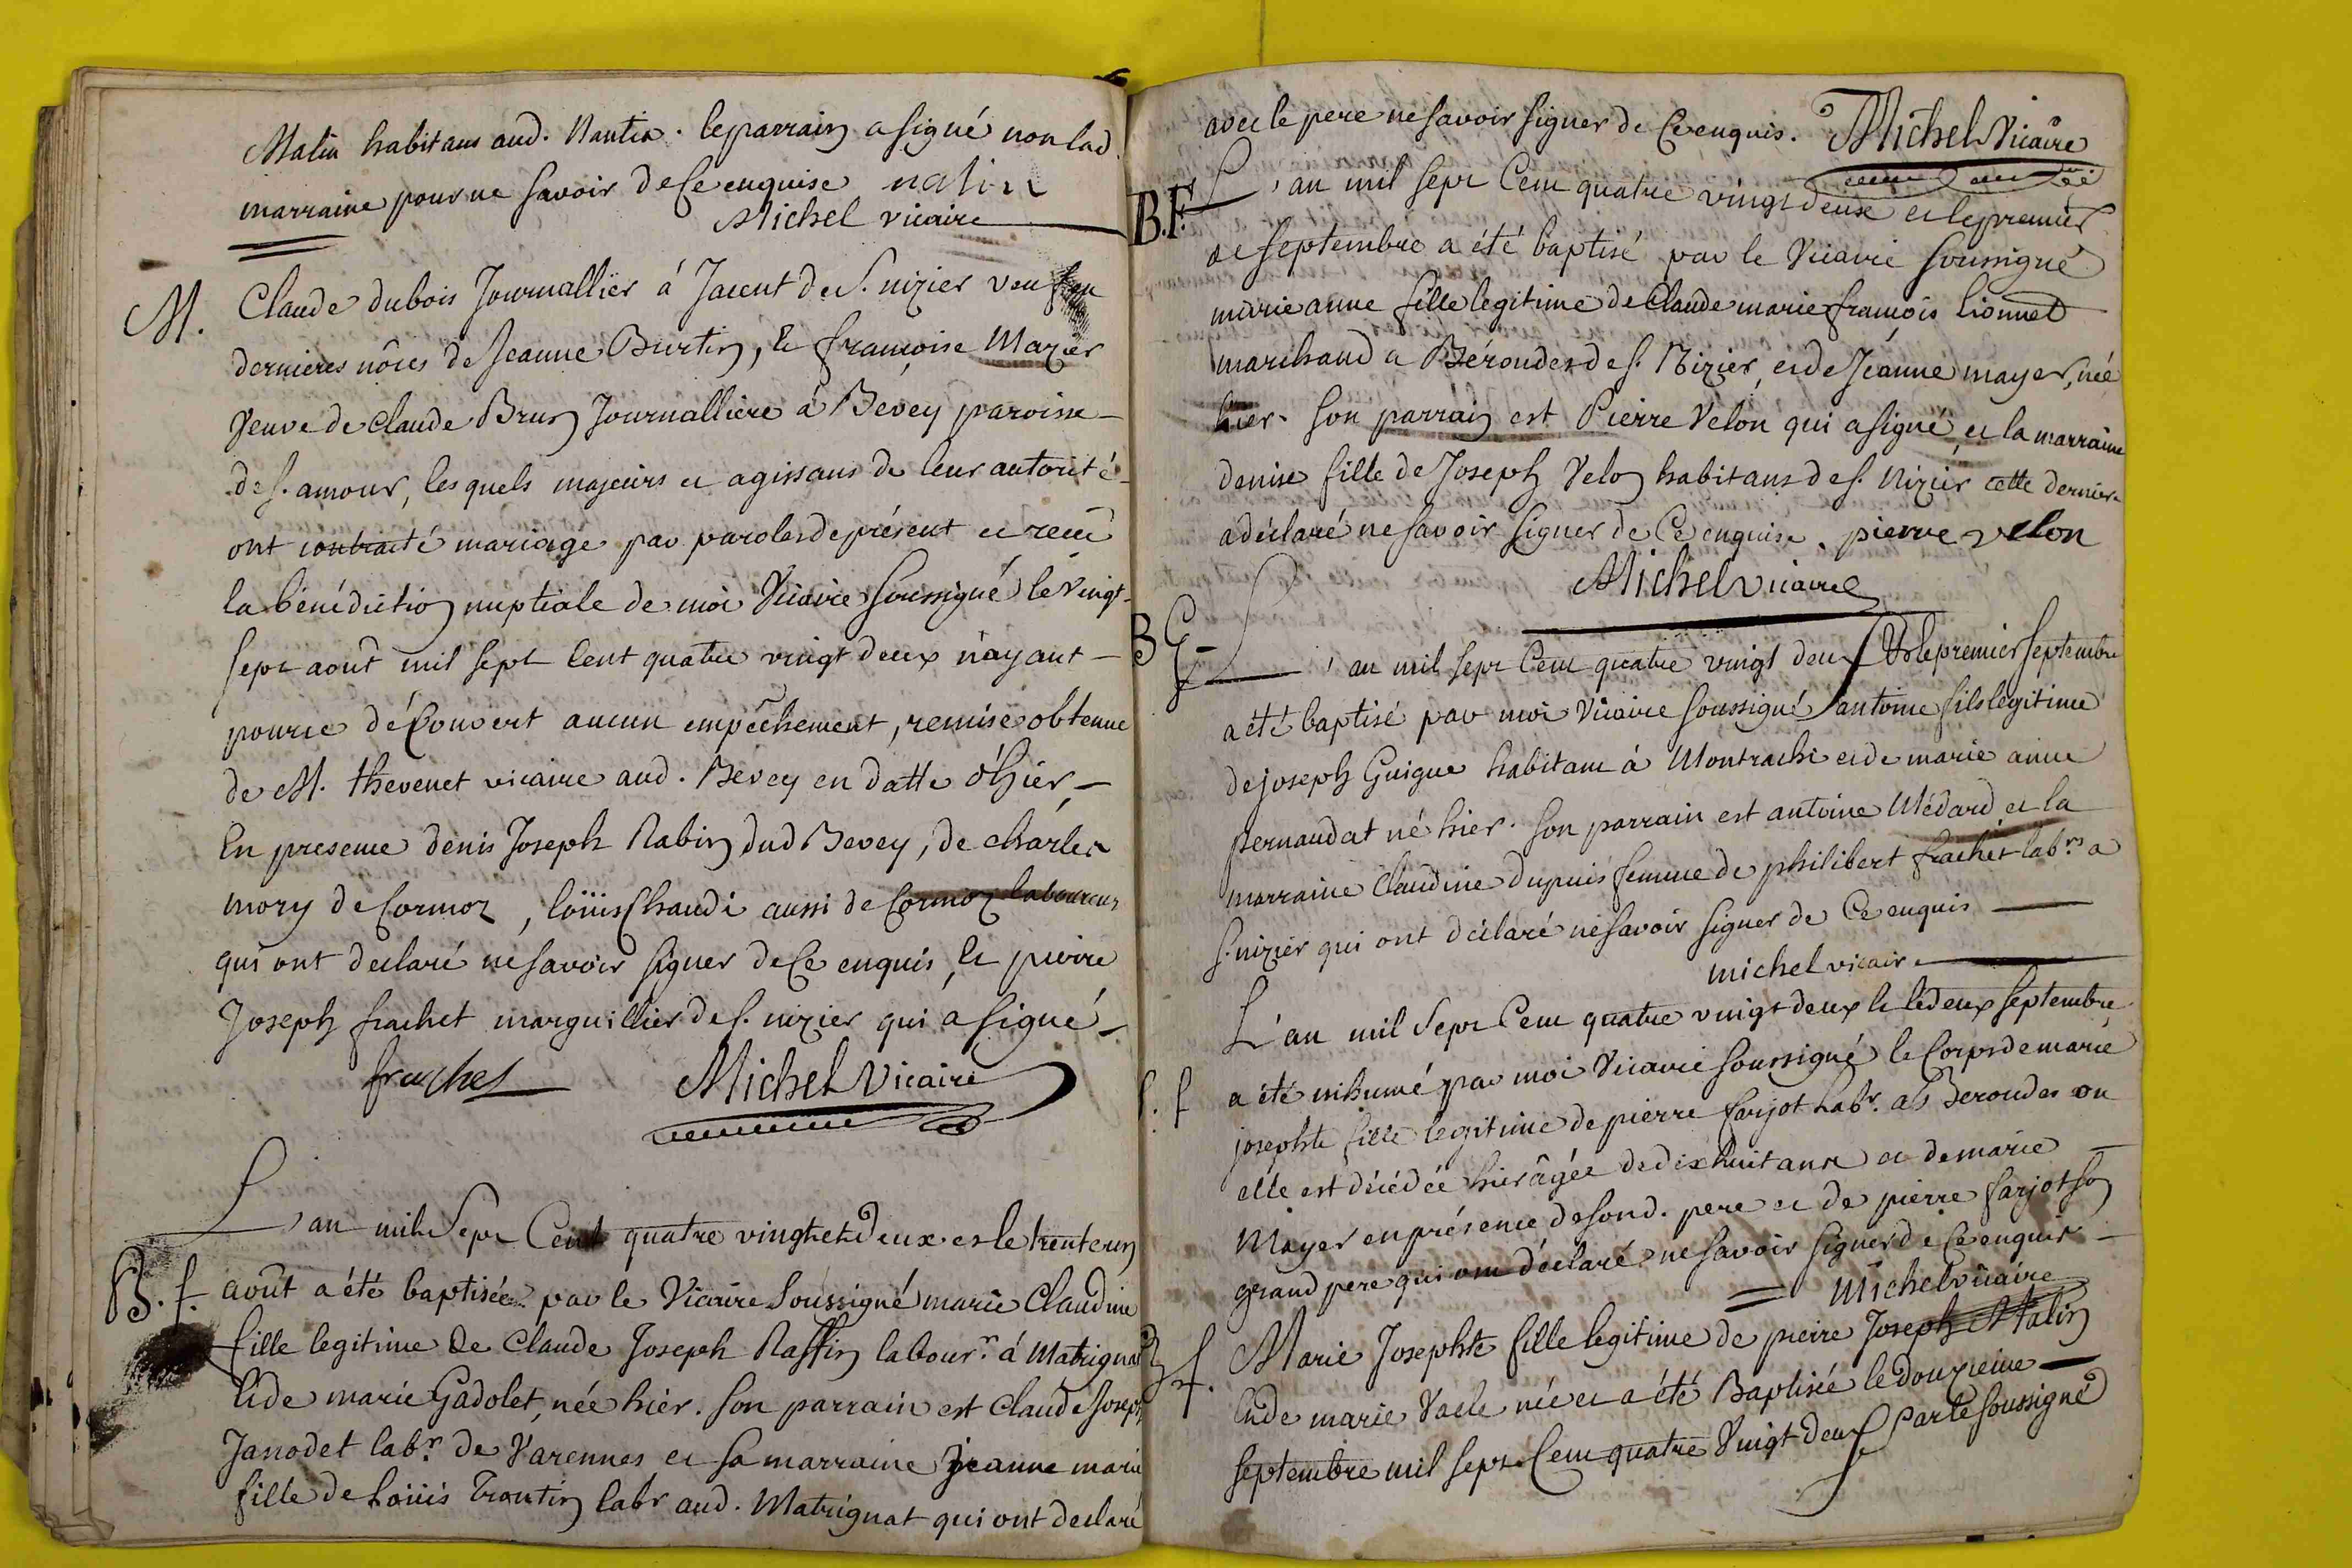 Malin habitans aud. Nantia. le parrain a signé non lad.
marraine pour ne savoir de ce enquise malin
Michel vicaire
M. Claude dubois Journallier á Jacent de s. nizier veuf en
dernieres nôces de Jeanne Burtin, et francoise Mazier
veuve de claude Brun Journalliere á Bevey paroisse
de s. amour, lesquels majeurs et agissans de leur autorité
ont contracté mariage par paroles de présent et recu
la bénédiction nuptiale de moi Vicaire soussigné le vingt
sept aout mil sept cent quatre vingt deux n'ayant
pource découvert aucun empêchement, remise obtenue
de M. thevenet vicaire aud. Bevey en datte d'hier,
En presence denis Joseph Rabin dud Bevey, de charles
mory de Cormoz, loüis Chaudi aussi de Cormoz laboureurs
qui ont declaré ne savoir signer de ce enquis, et pierre
Joseph frachet marguillier de s. nizier qui a signé
frachet Michel Vicaire
L'an mil Sept Cent quatre vingt et deux et le trente un
B. f. août a été baptisée par le Vicaire Soussigné marie Claudine
fille legitime de Claude Joseph Raffin labour.r á Matrignat
et de marie Gadolet, née hier. son parrain est Claude Joseph
Janodet lab.r de Varennes et sa marraine jeanne marie
fille de Loüis Trontin lab.r aud. Matrignat qui ont declaré
avec le pere ne savoir signer de ce enquis. Michel Vicaire
B.F. L'an mil sept Cent quatre vingt deux et le premier
de septembre a été baptisé par le Vicaire soussigné
marie anne fille legitime de Claude marie francois Lionnet
marchand a Béroudes de s. Nizier, et de Jeanne mayer, née
hier. son parrain est Pierre Velon qui a signé, et la marraine
denise fille de Joseph Velon habitans de s. Nizier cette derniere
a déclaré ne savoir signer de Ce enquise. pierre velon
Michel vicaire
B G L'an mil sept Cent quatre vingt deux Et le premier septembre
a été baptisé par moi Vicaire soussigné antoine fils legitime
de joseph Guigue habitant à Montrachi et de marie anne
pernaudat né hier. son parrain est antoine Médard et la
marraine Claudine dupuis femme de philibert frachet lab.rs a
s. nizier qui ont déclaré ne savoir signer de Ce enquis
michel vicaire
L'an mil Sept Cent quatre vingt deux et le deux septembre
s. f a été inhumé par moi Vicaire soussigné le Corps de marie
josephte fille legitime de pierre farjot lab.r a Beroudes ou
elle est décédée hier âgée de dix huit ans et de marie
Mayer en présence de son d. pere et de pierre farjot son
grand pere qui ont déclaré ne savoir signer de Ce enquis
Michel vicaire
B f. Marie Josephte fille legitime de pierre Joseph Malin
Et de marie Vacle née et a été Baptisée le douzieme
septembre mil sept Cent quatre Vingt deux Par le soussigné